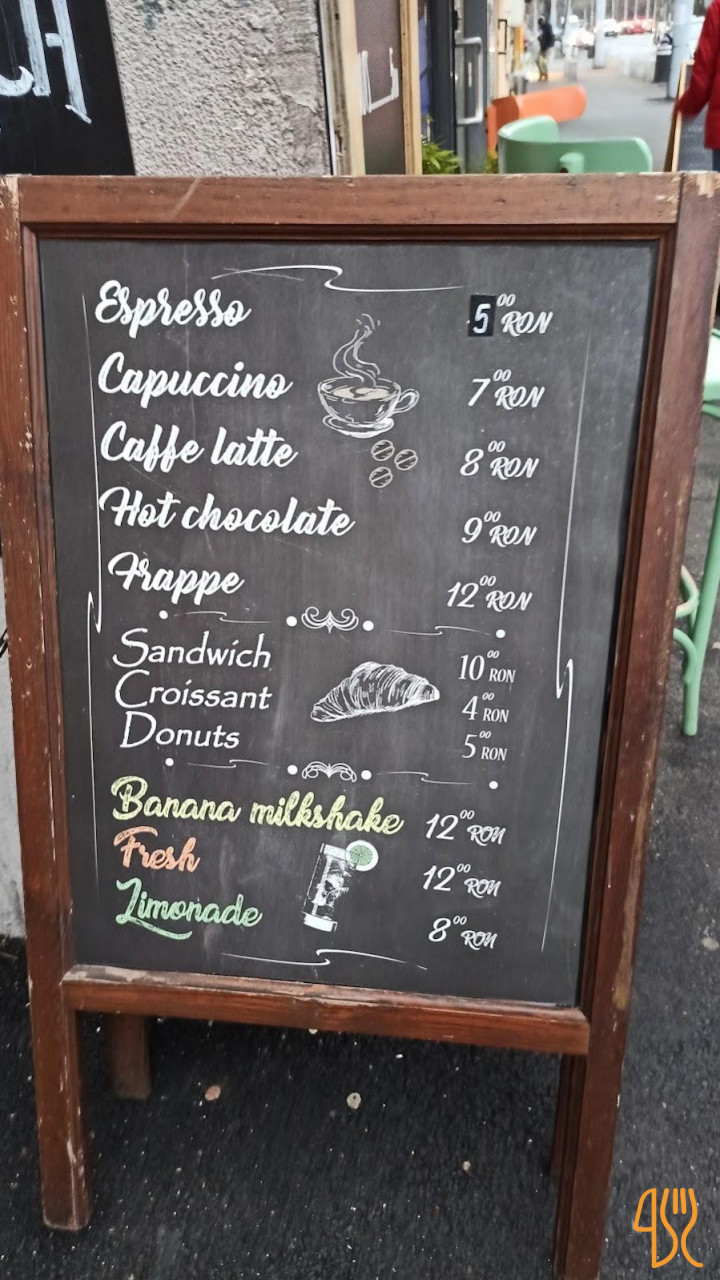 Espresso 5⁰⁰ RON
Capuccino 7⁰⁰ RON
Caffe latte 8⁰⁰ RON
Hot chocolate 9⁰⁰ RON
Frappe 12⁰⁰ RON
Sandwich 10⁰⁰ RON
Croissant 4⁰⁰ RON
Donuts 5⁰⁰ RON
Banana milkshake 12⁰⁰ RON
Fresh 12⁰⁰ RON
Limonade 8⁰⁰ RON